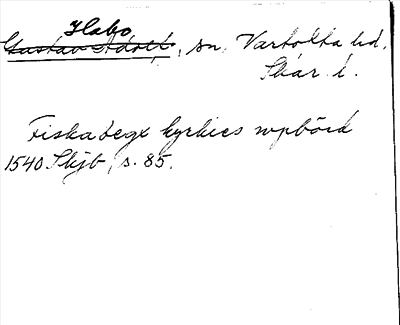 Habo
Gustav Adolf, sn, Vartofta hd,
Skar. l.
Fiskabegx kyrkies wpbörd
1540 Skjb, s. 85.